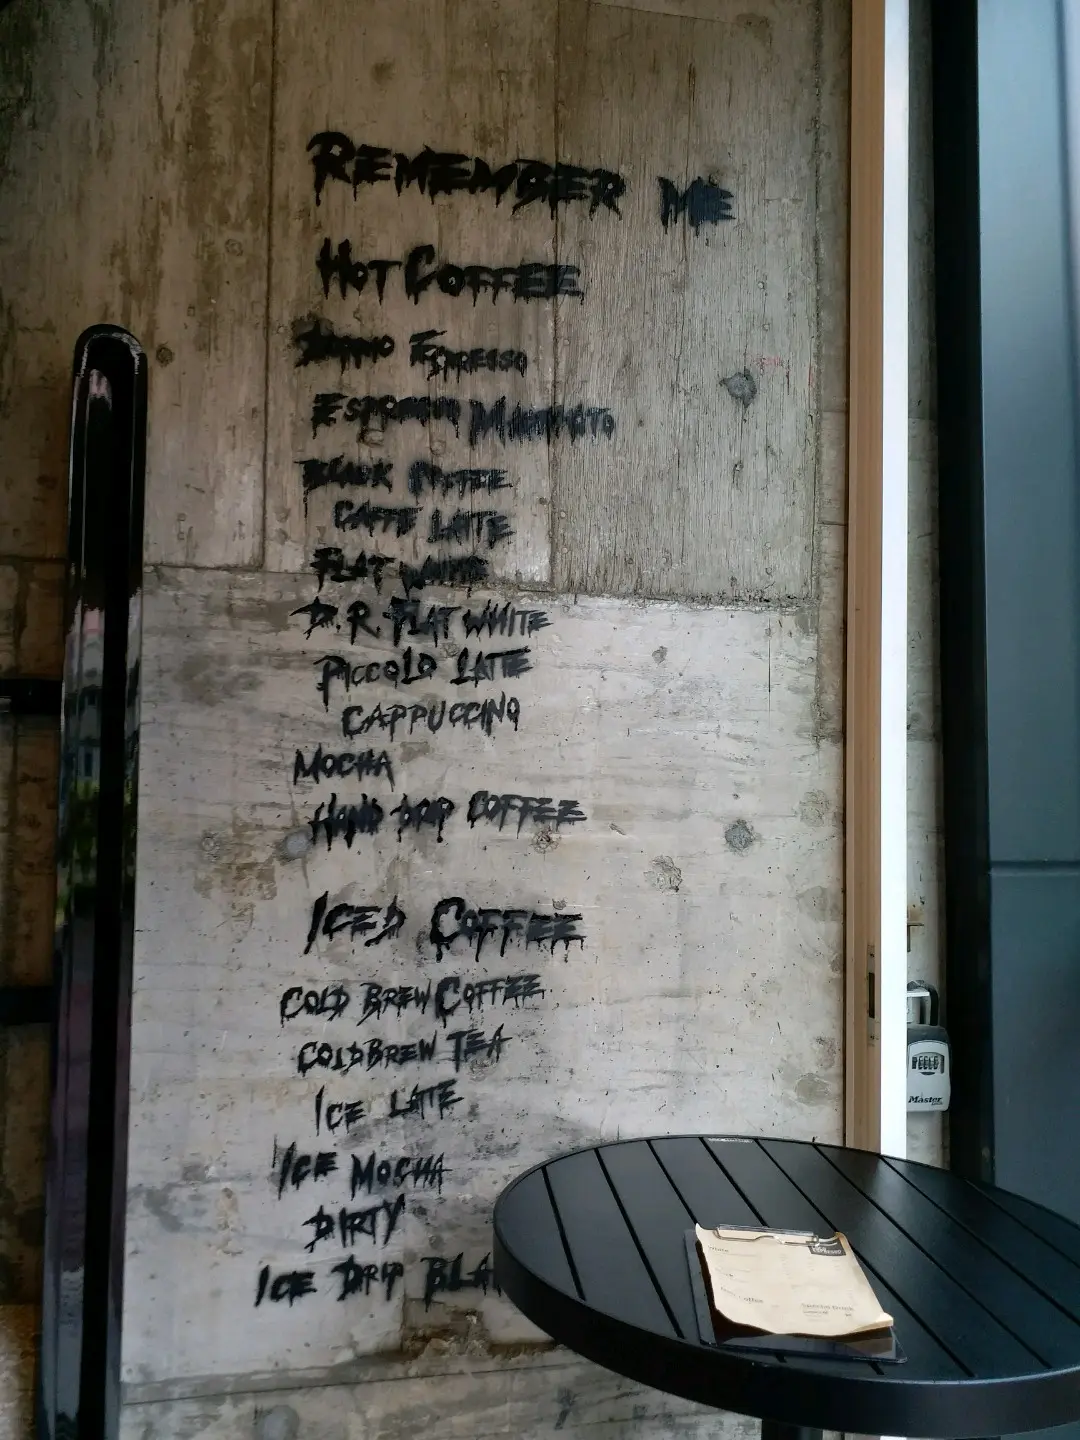 REMEMBER ME
HOT COFFEE
DOPPIO ESPRESSO
ESPRESSO
BLACK COFFEE
CAFFE LATTE
FLAT WHITE
D.R. FLAT WHITE
PICCOLO LATTE
CAPPUCCINO
MOCHA
HAND DRIP COFFEE
ICED COFFEE
COLD BREW COFFEE
COLDBREW TEA
ICE LATTE
ICE MOCHA
DIRTY
ICE DRIP BLA
Master